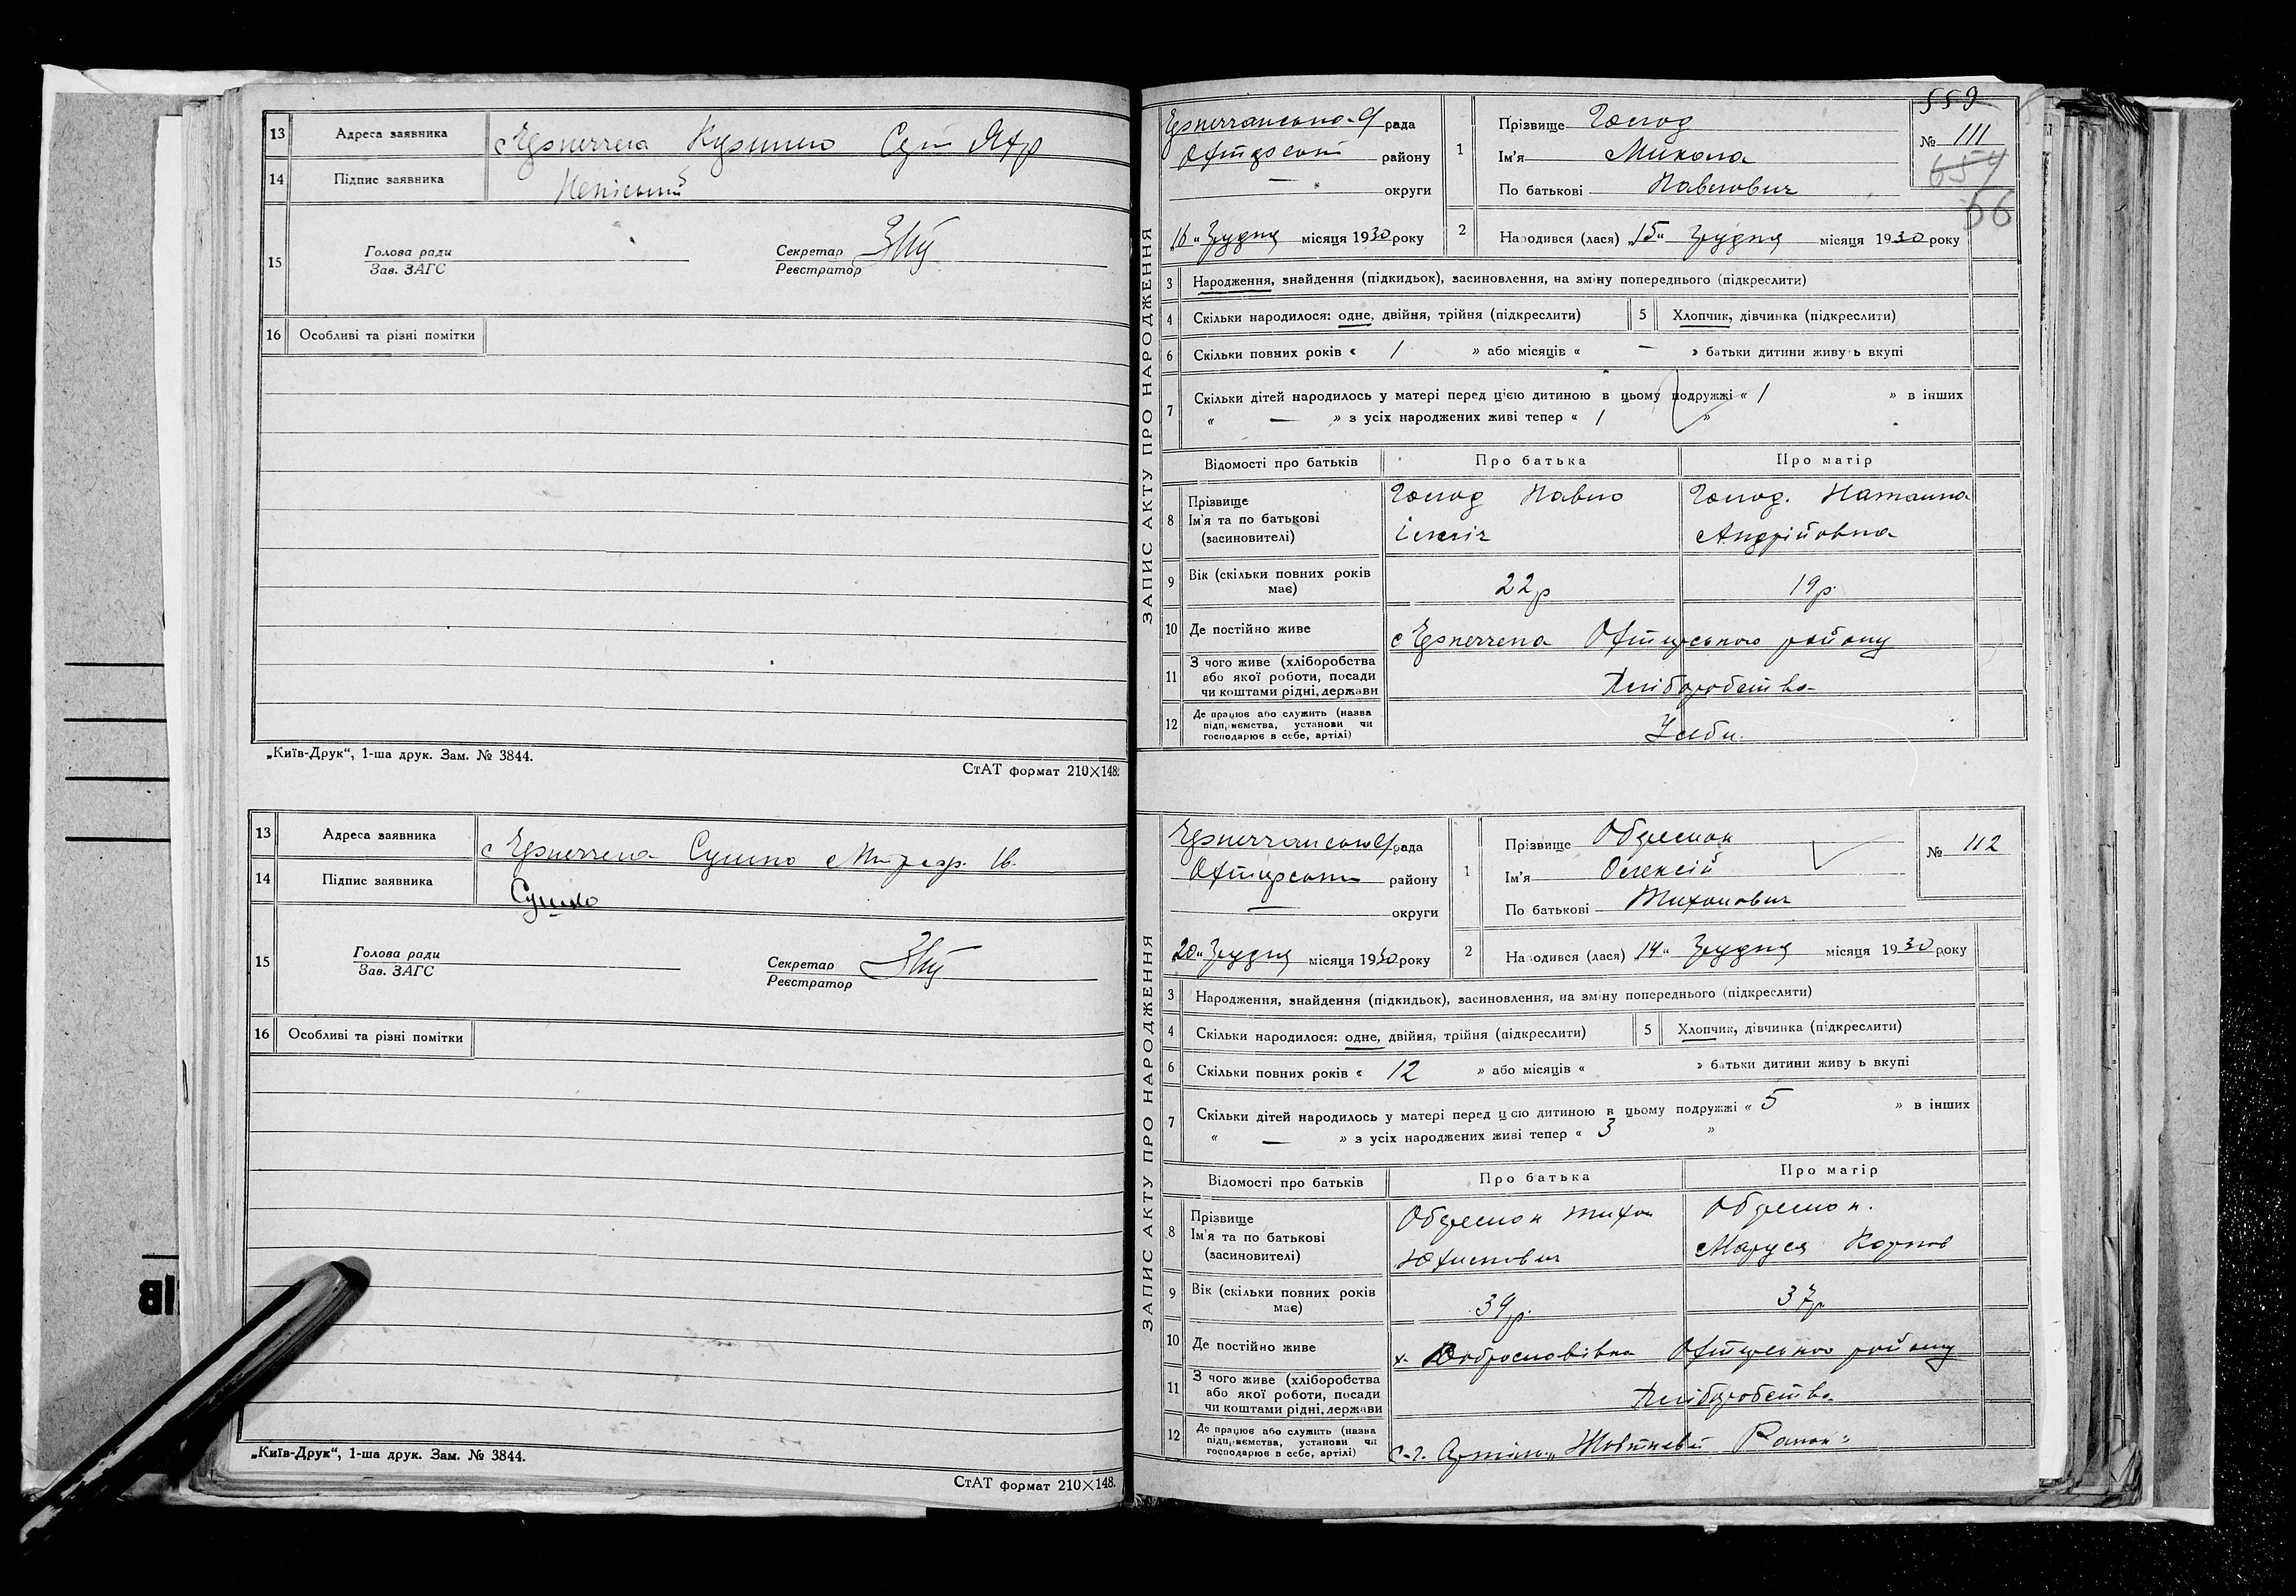 13 Адреса заявника
14 Підпис заявника
15 Голова ради
Зав. ЗАГС
Секретар
Реєстратор
16 Особливі та різні помітки
„Київ-Друк“, 1-ша друк. Зам. № 3844.
СтАТ формат 210×148.
13 Адреса заявника
14 Підпис заявника
Сушко
15 Голова ради
Зав. ЗАГС
Секретар
Реєстратор
16 Особливі та різні помітки
„Київ-Друк“, 1-ша друк. Зам. № 3844.
СтАТ формат 210×148.
ЗАПИС АКТУ ПРО НАРОДЖЕННЯ
рада
району
округи
„16“ Грудня місяця 1930 року
559
№ 111
654
56
1 Прізвище
Ім'я Микола
По батькові Павлович
2 Народився (лася) „15“ Грудня місяця 1930 року
3 Народження, знайдення (підкидьок), засиновлення, на зміну попереднього (підкреслити)
4 Скільки народилося: одне, двійня, трійня (підкреслити)
5 Хлопчик, дівчинка (підкреслити)
6 Скільки повних років « 1 » або місяців « — » батьки дитини живуть вкупі
7 Скільки дітей народилось у матері перед цією дитиною в цьому подружжі « 1 » в інших
« — » з усіх народжених живі тепер « 1 »
Відомості про батьків
Про батька
Про матір
8 Прізвище
Ім'я та по батькові
(засиновителі)
Павло
Наталка
Андрійовна
9 Вік (скільки повних років має)
22 р
19 р.
10 Де постійно живе
Охтирського району
11 З чого живе (хліборобства
або якої роботи, посади
чи коштами рідні, держави
Хліборобства
12 Де працює або служить (назва
підприємства, установи чи
господарює в себе, артілі)
У себи.
ЗАПИС АКТУ ПРО НАРОДЖЕННЯ
рада
району
округи
„20“ Грудня місяця 1930 року
№ 112
1 Прізвище
Ім'я Олексій
По батькові Тихонович
2 Народився (лася) „14“ Грудня місяця 1930 року
3 Народження, знайдення (підкидьок), засиновлення, на зміну попереднього (підкреслити)
4 Скільки народилося: одне, двійня, трійня (підкреслити)
5 Хлопчик, дівчинка (підкреслити)
6 Скільки повних років « 12 » або місяців « » батьки дитини живуть вкупі
7 Скільки дітей народилось у матері перед цією дитиною в цьому подружжі « 5 » в інших
« — » з усіх народжених живі тепер « 3 »
Відомості про батьків
Про батька
Про матір
8 Прізвище
Ім'я та по батькові
(засиновителі)
Тихон
Маруся Карпов
9 Вік (скільки повних років має)
39 р.
37 р
10 Де постійно живе
х. Доброславівка Охтирського району
11 З чого живе (хліборобства
або якої роботи, посади
чи коштами рідні, держави
Хліборобства
12 Де працює або служить (назва
підприємства, установи чи
господарює в себе, артілі)
с-г. Артіль „Жовтневий Ранок“